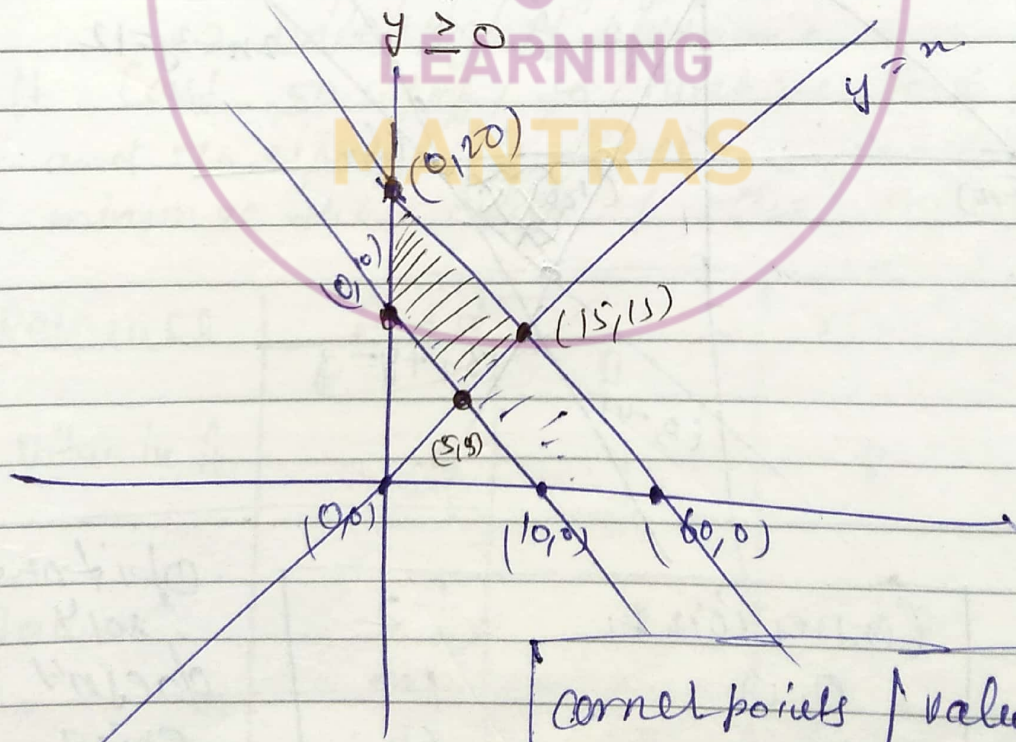 y ≥ 0
LEARNING
MANTRAS
y = x
(0,20)
(0,10)
(15,15)
(5,5)
(0,0)
(10,0)
(60,0)
corner points | valu